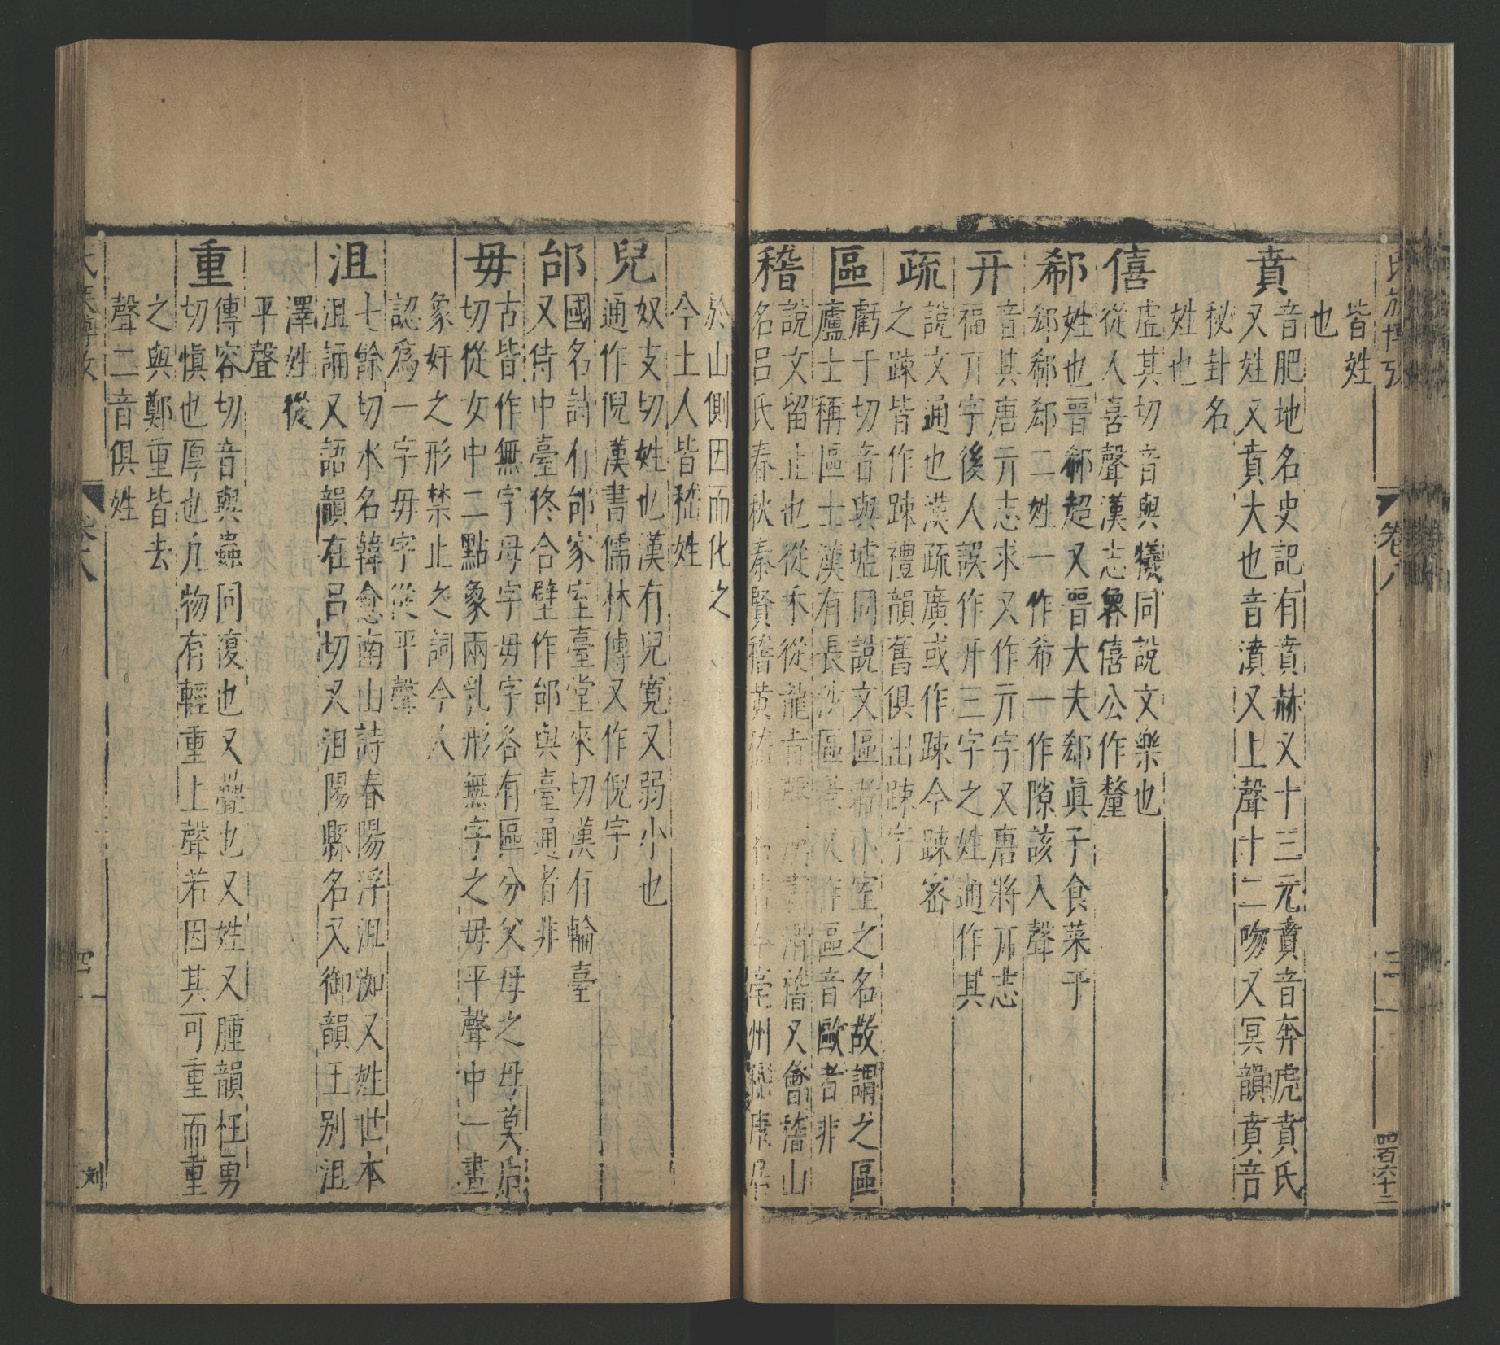 皆姓
也
賁
音肥地名史記有賁赫又十三元賁音奔虎賁氏
又姓又賁大也音濆又上聲十二吻又冥韻賁音
秘卦名
姓也
僖
虗其切音與犧同說文樂也
從人喜聲漢志魯僖公作釐
郗
姓也晉郗超又晋大夫郄眞子食菜于
郄郗郄二姓一作希一作隙該入聲
亓
音其唐亓志求又作亓字又唐將亓志
福亓字後人誤作开三字之姓通作其
疏
說文通也漢疏廣或作踈今踈審
之踈皆作踈禮韻舊俱出踈字
區
虧于切音與墟同說文區
小室之名故謂之區
廬士稱區士漢有長沙區
作區音歐者非
稽
說文留止也從禾從
稽又會稽山
名呂氏春秋秦賢稽黄
亳州
於山側因而化之
今土人皆嵇姓
兒
奴支切姓也漢有兒寬又弱小也
通作倪漢書儒林傳又作倪字
邰
國名詩有邰家室臺堂來切漢有輪臺
又侍中臺佟合壁作邰與臺通者非
毋
古皆作無字母字毋字各有區分父母之母莫后
切從女中二點象兩乳形無字之毋平聲中一畫
象奸之形禁止之詞今人
認爲一字毋字從平聲
沮
七餘切水名韓愈南山詩春陽浮沮洳又姓世本
沮誦又語韻在呂切又沮陽縣名又御韻王別沮
澤姓從
平聲
重
傳容切音與蟲同復也又疊也又姓又腫韻枉勇
切愼也厚也凡物有輕重上聲若因其可重而重
之與鄭重皆去
聲二音俱姓
卷八
四百六十二